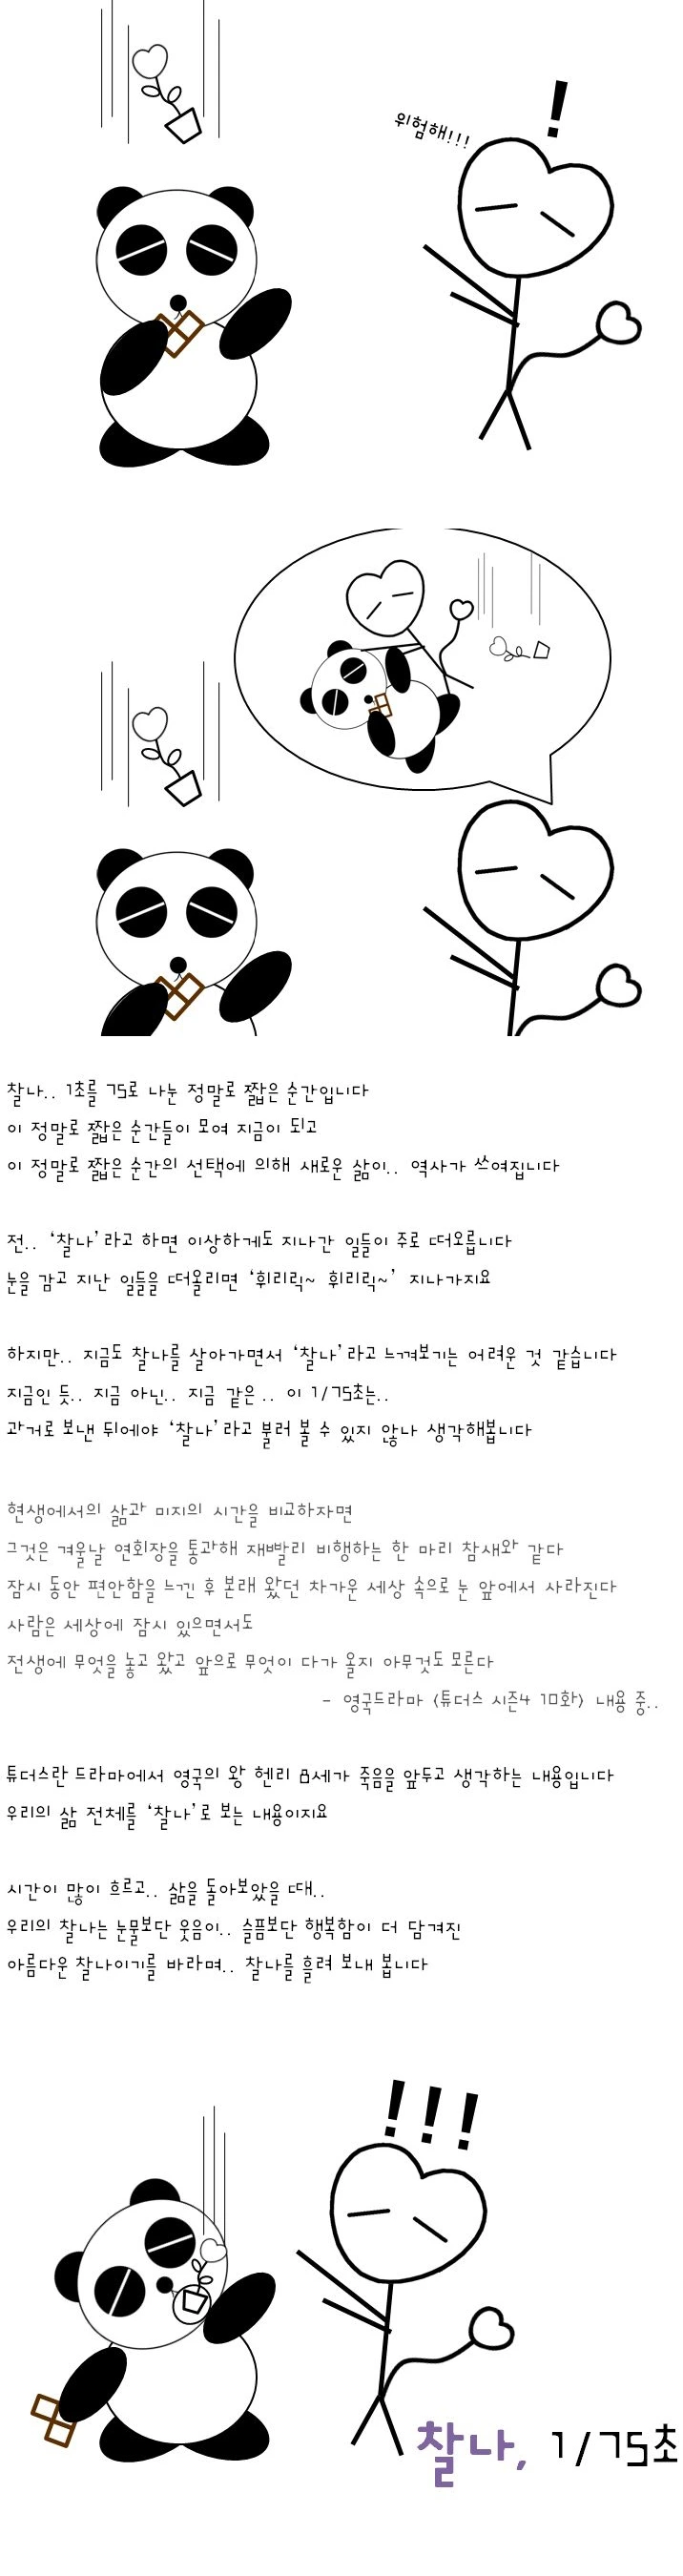 !
위험해!!!
찰나.. 1초를 75로 나눈 정말로 짧은 순간입니다
이 정말로 짧은 순간들이 모여 지금이 되고
이 정말로 짧은 순간의 선택에 의해 새로운 삶이.. 역사가 쓰여집니다
전.. ‘찰나’라고 하면 이상하게도 지나간 일들이 주로 떠오릅니다
눈을 감고 지난 일들을 떠올리면 ‘휘리릭~ 휘리릭~’ 지나가지요
하지만.. 지금도 찰나를 살아가면서 ‘찰나’라고 느껴보기는 어려운 것 같습니다
지금인 듯.. 지금 아닌.. 지금 같은 .. 이 1/75초는..
과거로 보낸 뒤에야 ‘찰나’라고 불러 볼 수 있지 않나 생각해봅니다
현생에서의 삶과 미지의 시간을 비교하자면
그것은 겨울날 연회장을 통과해 재빨리 비행하는 한 마리 참새와 같다
잠시 동안 편안함을 느낀 후 본래 왔던 차가운 세상 속으로 눈 앞에서 사라진다
사람은 세상에 잠시 있으면서도
전생에 무엇을 놓고 왔고 앞으로 무엇이 다가 올지 아무것도 모른다
- 영국드라마 <튜더스 시즌4 10화> 내용 중..
튜더스란 드라마에서 영국의 왕 헨리 8세가 죽음을 앞두고 생각하는 내용입니다
우리의 삶 전체를 ‘찰나’로 보는 내용이지요
시간이 많이 흐르고.. 삶을 돌아보았을 때..
우리의 찰나는 눈물보단 웃음이.. 슬픔보단 행복함이 더 담겨진
아름다운 찰나이기를 바라며.. 찰나를 흘려 보내 봅니다
!!!
찰나, 1/75초